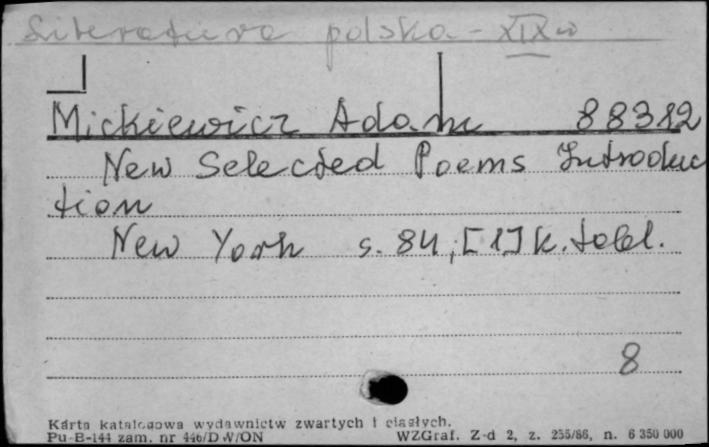 Literatura polska - XIX w
Mickiewicz Adam 88382
New Selected Poems Introduc
tion
New York s. 84, [1] k. tabl.
8
Karta katalogowa wydawnictw zwartych i ciągłych.
Pu-B-144 zam. nr 446/DW/ON WZGraf. Z-d 2, z. 255/86, n. 6 350 000